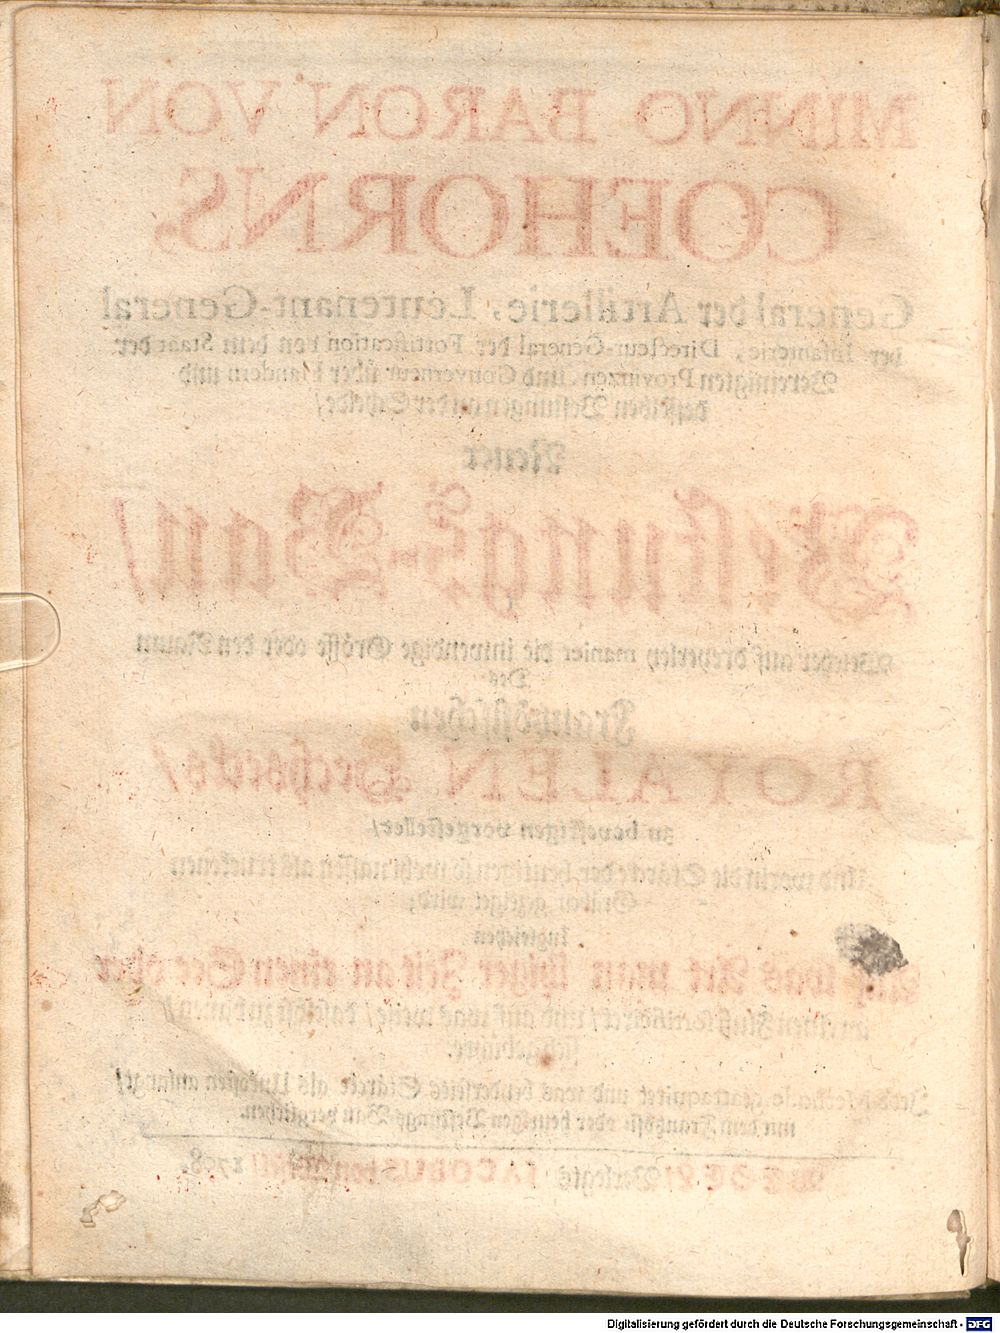 MINNO BARON VON
COEHORNS,
General der Artillerie, Leutenant-General
der Infanterie, Directeur-General der Fortification von dem Staat der
Vereinigten Provinzen, und Gouverneur über Flandern und
deßelben Vestungen an der Schelde/
Neuer
Vestungs-Bau/
Welcher auf dreyerley manier die innwendige Grösse oder den Raum
Des
Frantzösischen
ROYALEN Sechsecks/
zu bevestigen vorgestellet/
Und worin die Stärcke der heutigen so wohl nassen als truckenen
Gräben gezeiget wird;
Ingleichen
Auf was Art man itziger Zeit an einen See oder
an einen Fluß fortificiret/ und auf was weise/ daselbst zu bauen/
sich gebühre.
Jede Methode attaquiret und was beyderseits Stärcke als Unkosten anlangt/
mit dem Frantzös- oder heutigen Vestungs-Bau verglichen.
WESEL/ Verlegts JACOBUS von 1708.
Digitalisierung gefördert durch die Deutsche Forschungsgemeinschaft - DFG